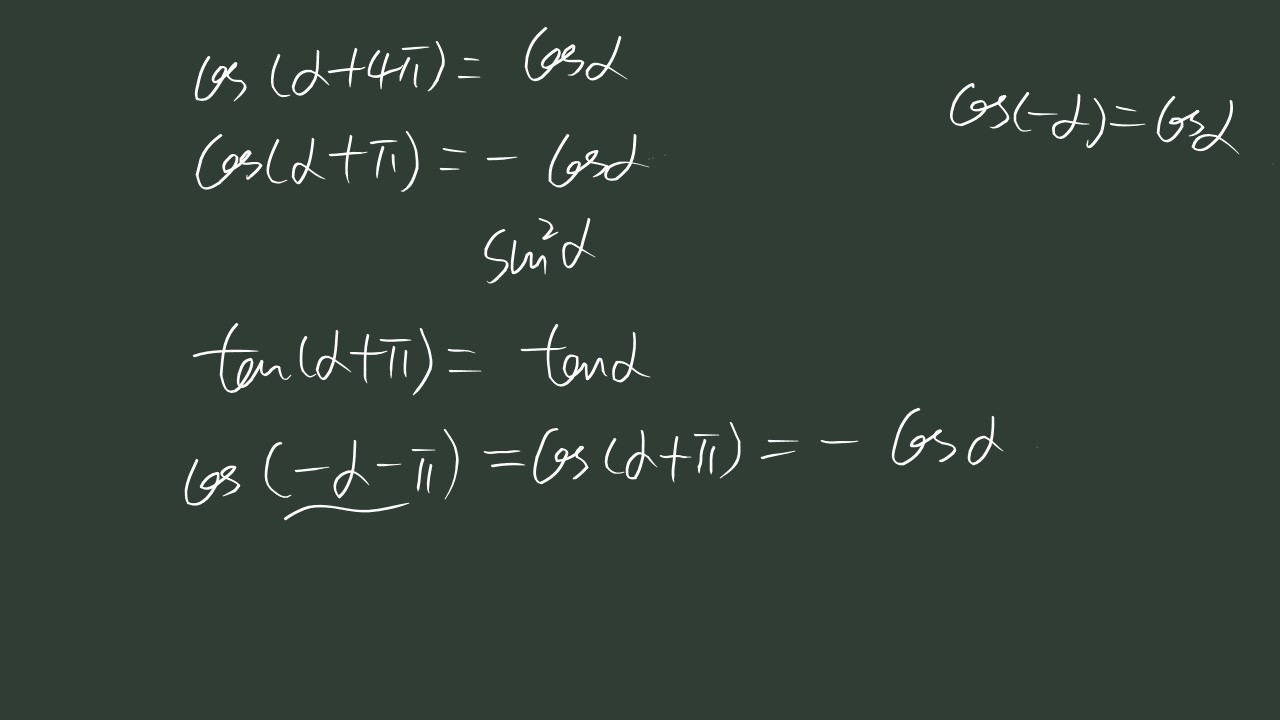 cos(α+4π)= cosα
cos(-α)=cosα
cos(α+π)=- cosα
sin²α
tan(α+π)= tanα
cos(-α-π)=cos(α+π)=- cosα